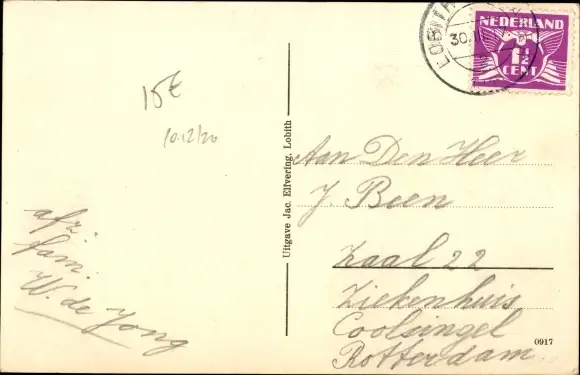 LOBITH
30.
NEDERLAND
1½
CENT
15€
10.12/20
Aan Den Heer
J. Been
Zaal 22
Ziekenhuis
Coolsingel
Rotterdam.
afz.
fam.
W. de Jong
Uitgave Jac. Elfvering, Lobith
0917